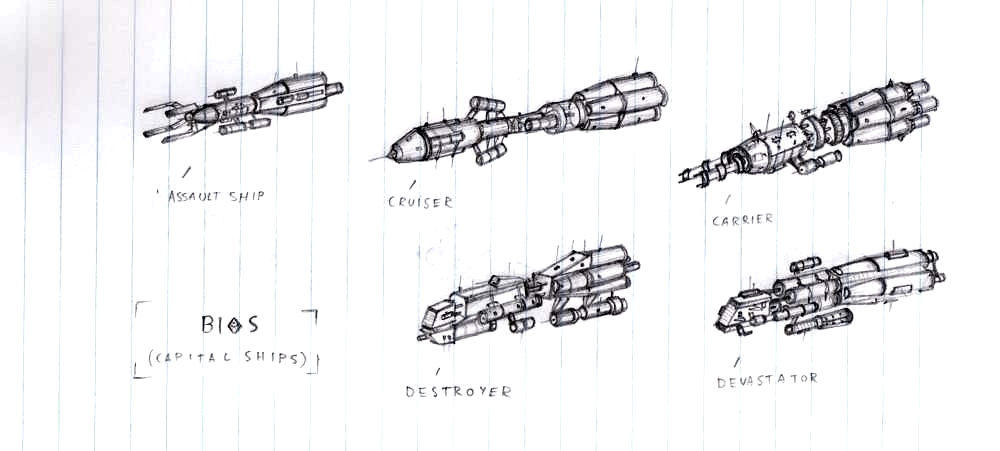 ASSAULT SHIP
CRUISER
CARRIER
BIOS
(CAPITAL SHIPS)
DESTROYER
DEVASTATOR